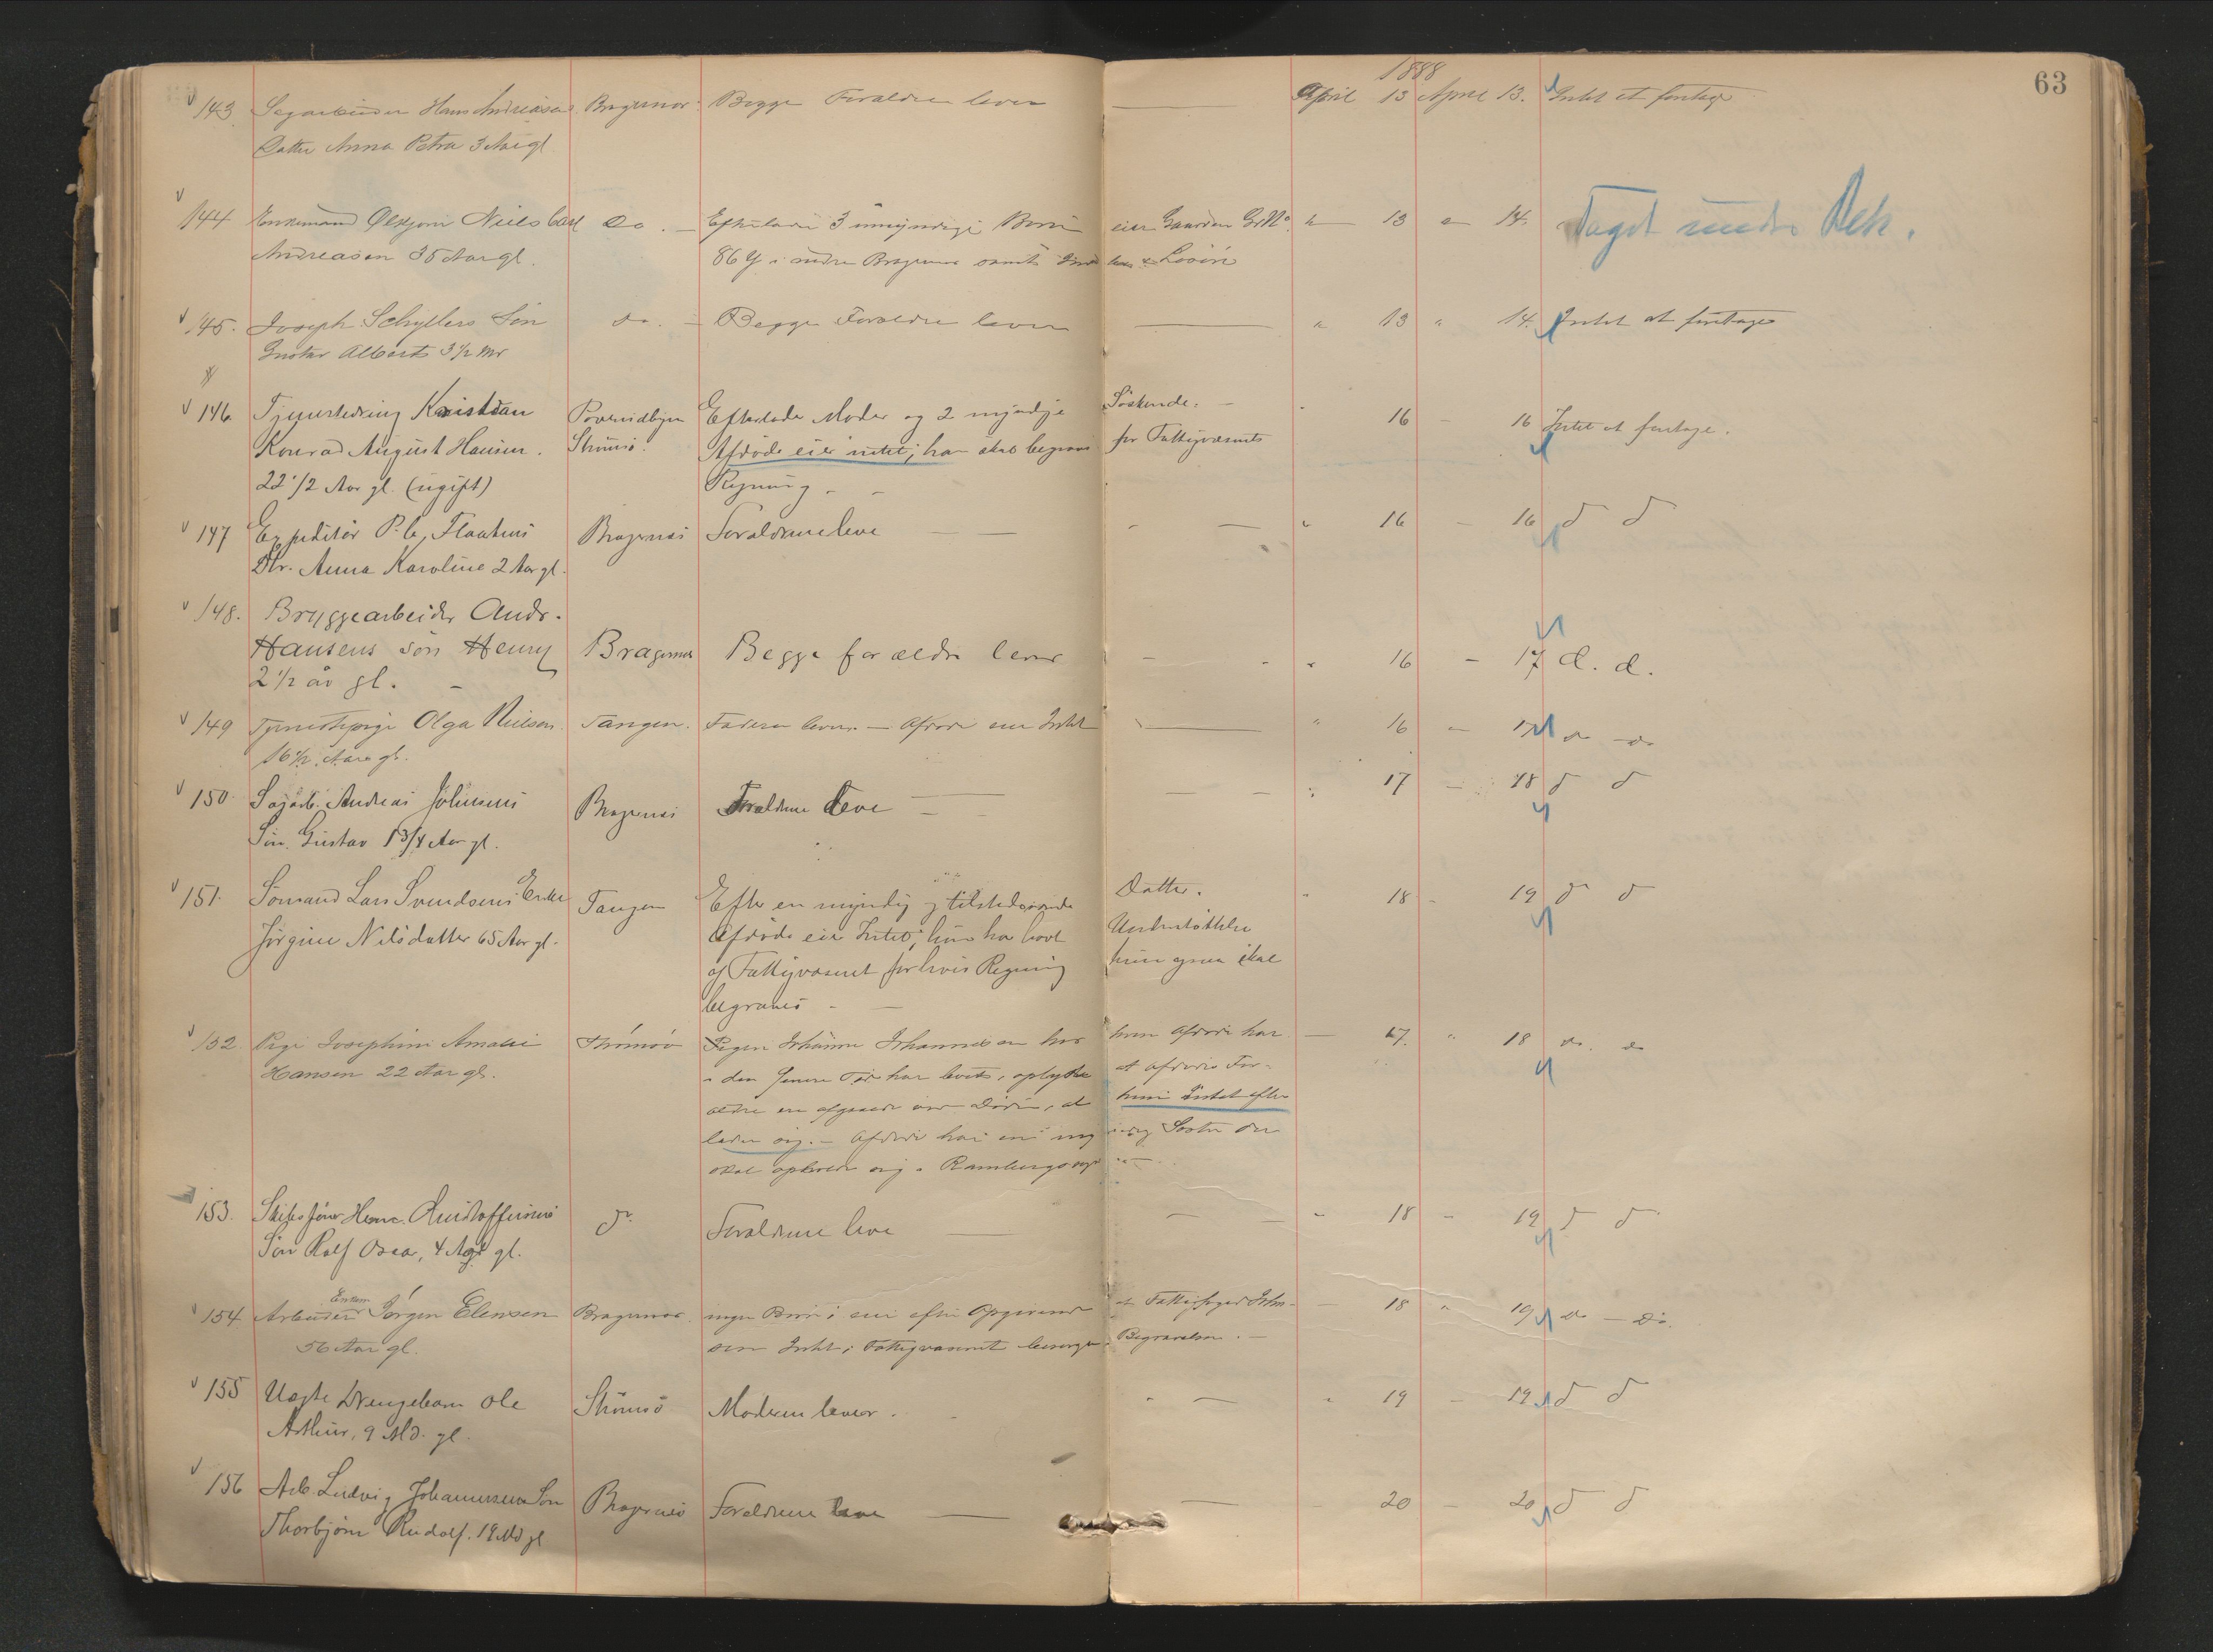 63
1888
143 Hans Andreasens Bragernæs Begge Forældre lever — April 13 April 13. Intet at foretage
Datter Anna Petra 3 Aar gl
144 Enkemand Niels Carl do. — Efterlader 3 umyndige Børn eier Gaarden 13 14. Taget under Beh.
Andreasen 35 Aar gl. 86 i nedre Bragernæs samt Løsøre
145. Joseph Schyllers Søn do. — Begge Forældre lever — " 13 " 14. Intet at foretage
Gustav Albert 3 1/2 Mr
146. Kristian Strømsø. Efterlader Moder og 2 myndige Søskende. — 16 — 16 Intet at foretage.
Konrad August Hansen. Afdøde eier intet; han skal begraves for Fattigvæsenets
22 1/2 Aar gl. (ugift) Regning —
147 Expeditør P. C. Bragernæs Forældrene leve — " 16 — 16 d d
Dtr. Anna Karoline 2 Aar gl.
148. Bryggearbeider Andr.
Hansens søn Henry Bragernes Begge forældre lever — " 16 — 17 d. d.
2 1/2 år gl. —
149 Tjenestepige Olga Nielsen. Tangen. Faderen lever. — Afdøde eier Intet — " 16 — 17 do do
16 1/2 Aar gl.
150. Andreas Johnsens Bragernæs Forældrene leve — 17 — 18 d d
Søn. Gustav 1 3/4 Aar gl.
151. Sømand Lars Svendsens Enke Tangen Efter en myndig og tilstedeværende Datter. 18 — 19 d d
Jørgine Nilsdatter 65 Aar gl. Afdøde eier Intet; hun har havt Understøttelse
af Fattigvæsenet for hvis Regning hun ogsaa skal
begraves —
152. Pige Josephine Amalie Strømsø Pigen Johanne Johannesen hos hvem Afdøde har — 17. " 18 do. do
Hansen 22 Aar gl. i den senere Tid har levet, oplyste at Afdødes For-
ældre er afgaaede ved Døden, at hun Intet efter
lader sig. — Afdøde har en myndig Søster der
skal opholde sig i
153. Søn Rolf Oscar, 4 gl. do. Forældrene leve — " 18 — 19 d d
154 Arbeider Enkem Jørgen Elensen Bragernæs. ingen Børn; 18 " 19 do — Do.
56 Aar gl. Intet; Fattigvæsenet besørger Begravelsen. —
155 Uægte Drengebarn Ole Strømsø Moderen lever. — " 19 — 19 d d
Arthur, 9 Md. gl.
156 Arb. Ludvig Johannesens Søn Bragernæs Forældrene leve — 20 — 20 d d
Thorbjørn Rudolf. 19 Md gl